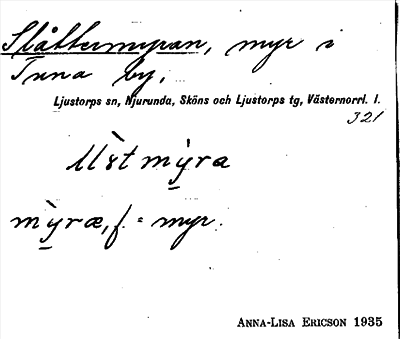 Slåttermyran, myr i
Tuna by,
Ljustorps sn, Njurunda, Sköns och Ljustorps tg, Västernorrl. l.
321
mỳræ, f. = myr.
ANNA-LISA ERICSON 1935